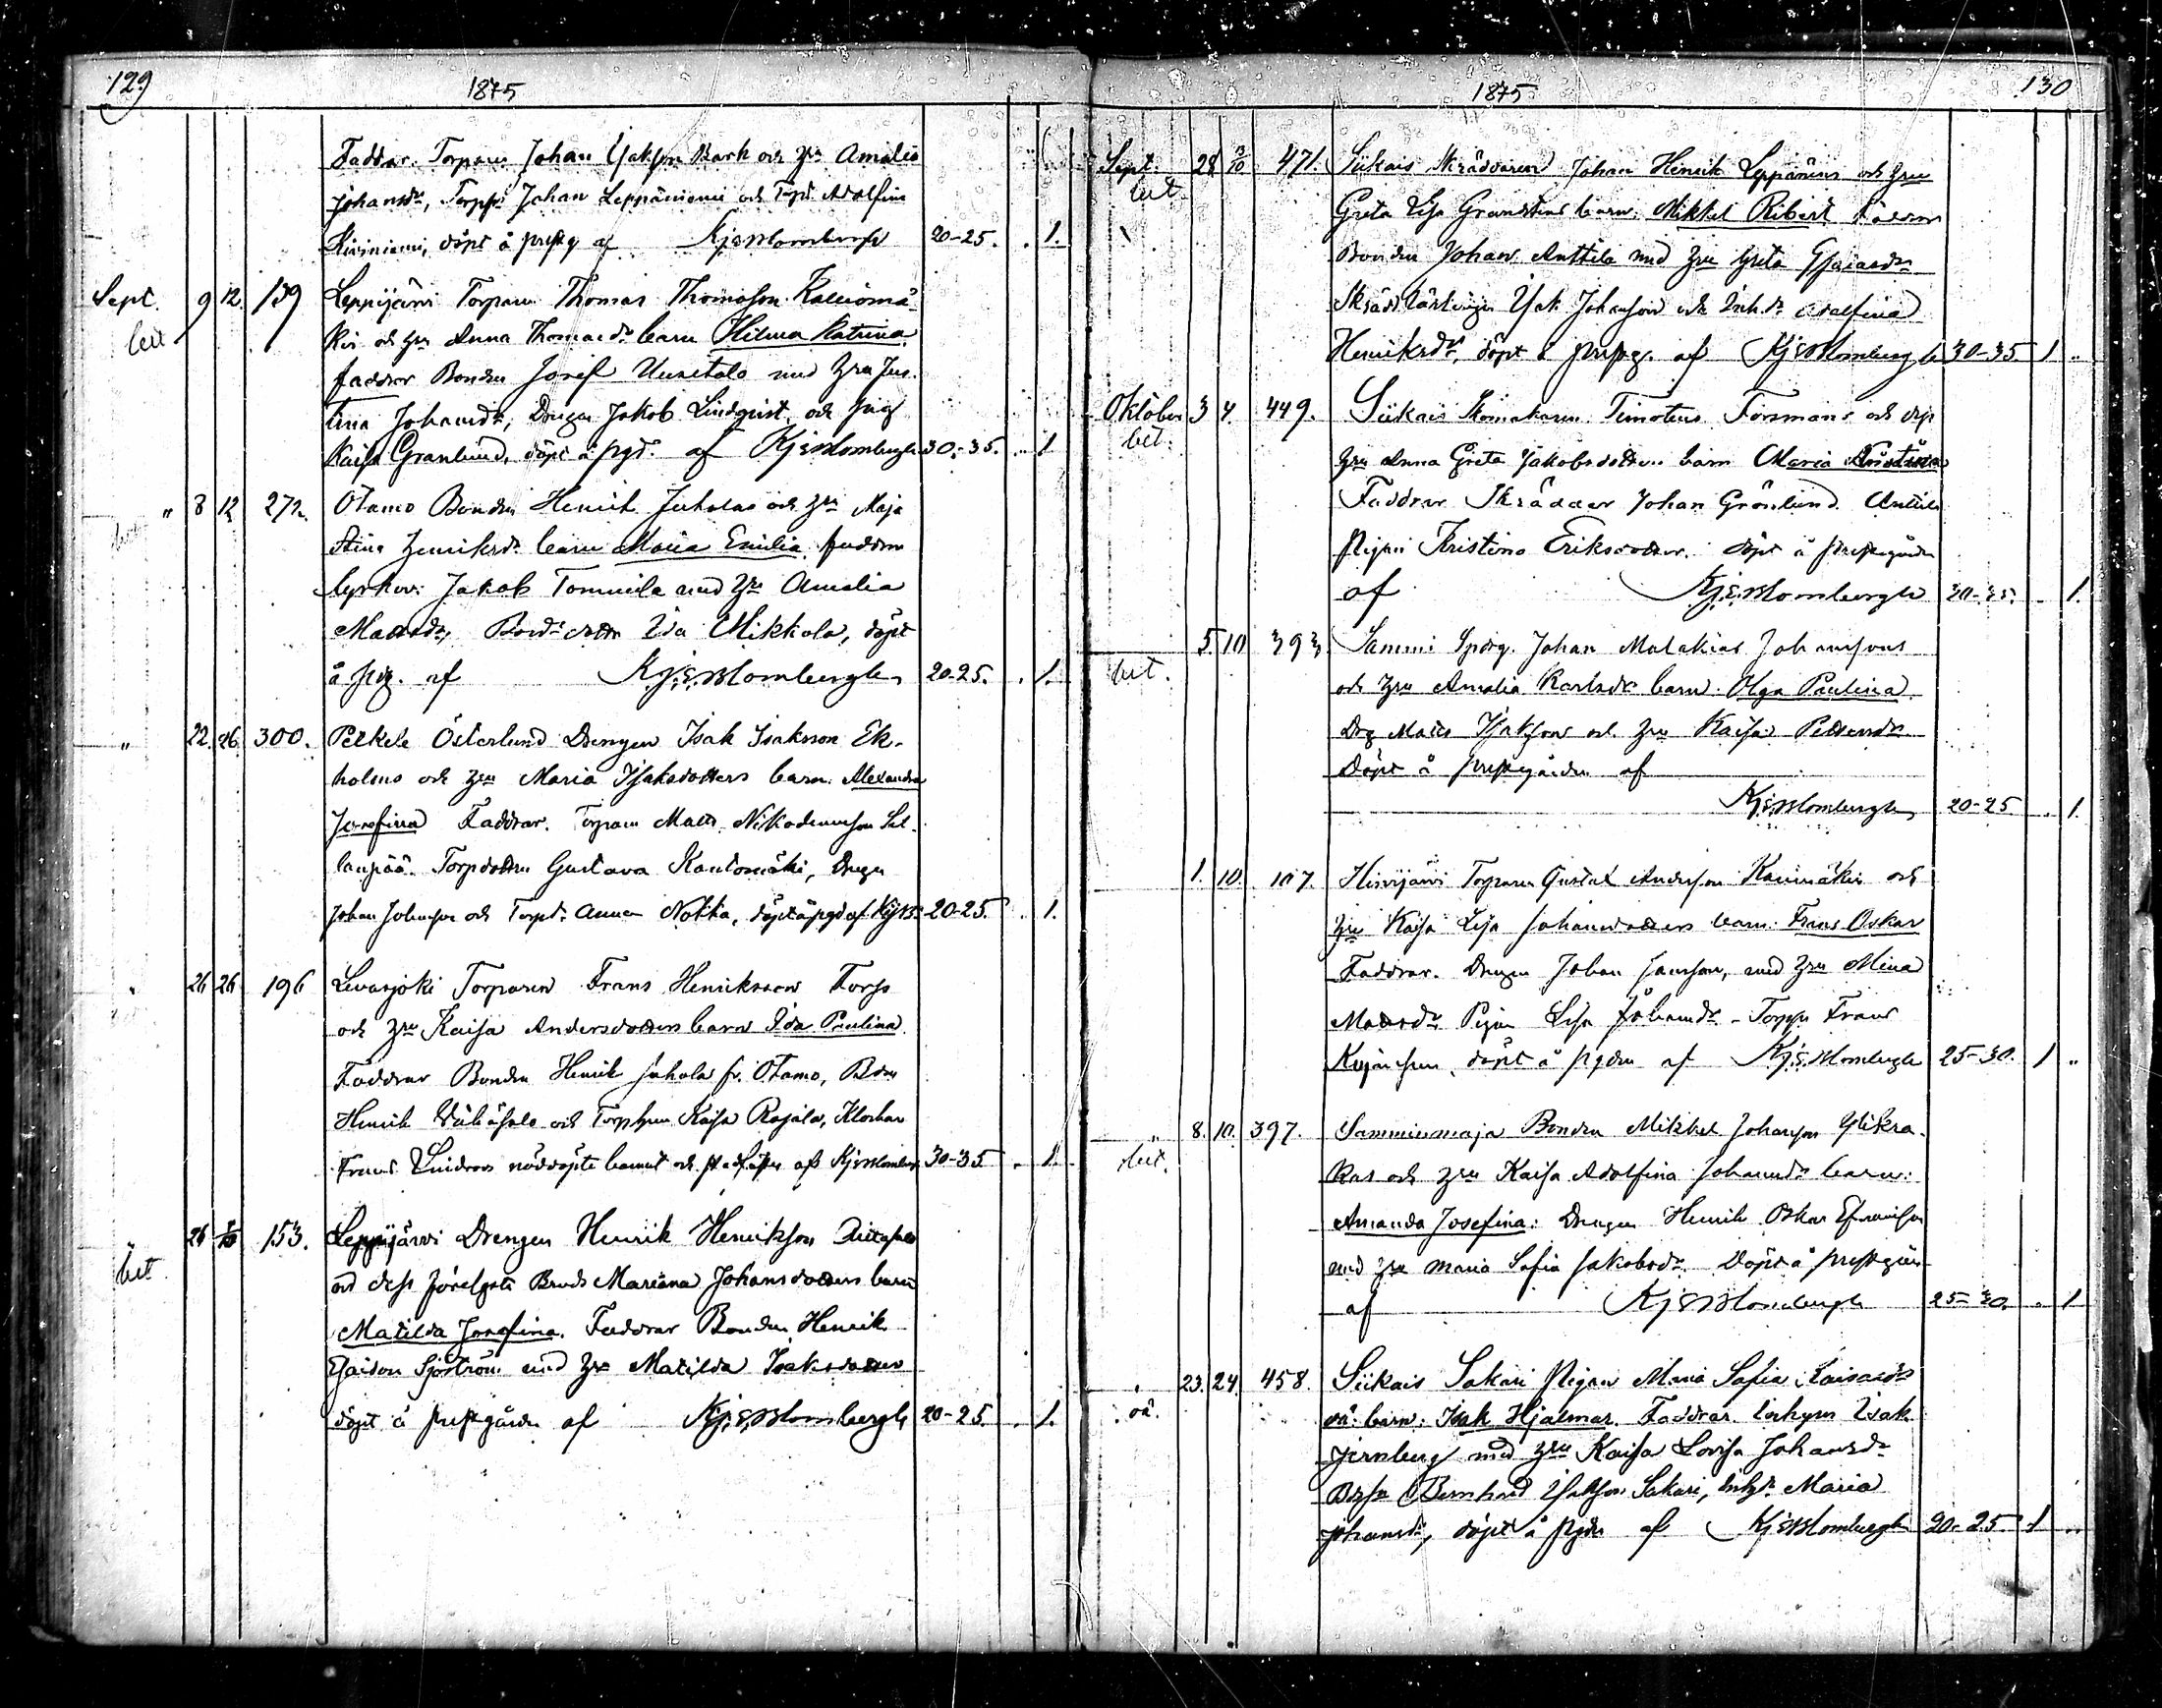 129
1875
Faddrar. Torparen Johan Isaksson Bark och Hru Amalia
Johansdr, Torpss Johan Leppäniemi och Torpd. Adolfina
Kiviniemi, döpt å prestg af KjEBlombergh 20-25. . 1.
Sept. 9 12. 139 Leppijärvi Torparen Thomas Thomasson Kalliomä-
bet kis och Hru Anna Thomasdr barn Hilma Katrina
faddrar Bonden Josef Uusitalo med Hru Jus-
tina Johansdr, Drengen Jakob Lindqvist och pig
Kaisa Granlund, döpt å pgd. af KjEBlombergh 30-35. .. 1
" 8 12 272. Otamo Bonden Henrik Juholas och Hru Maja
Stina Henriksdr barn Maria Emilia faddrar
kyrkov. Jakob Tommila med Hru Amalia
Mattsdr, Bondedottr Ida Mikkola, döpt
å ptg. af KjEBlombergh 20-25. . 1.
" 22. 26. 300. Petkele Österlund Drengen Isak Isaksson Ek-
holms och Hru Maria Isaksdotters barn. Alexandra
Josefina Faddrar. Torparen Matts Nikodemusson Sil-
lanpää. Torpdottren Gustava Kantomäki, Drngn
Johan Johansson och Torpd. Anna Nokka, döpt å pgd af KjEB. 20-25. . 1.
26 26 196 Levasjoki Torparen Frans Henriksson Forss
och Hru Kaisa Andersdotters barn Ida Paulina.
Faddrar Bonden Henrik Juhola fr. Otamo, Bdn
Henrik och Torphun Kaisa Rajala, Klockar
Frans Lindroos nöddöpte barnet och af KjEBlombergh 30-35 . 1.
" 26 153. Leppijärvi Drengen Henrik Henriksson
bet och dess Mariana Johansdotters barn
Matilda Josefina. Faddrar Bonden Henrik
Esaison Sjöström med Hru Matilda Isaksdotter
döpt å prestgården af KjEBlombergh 20-25. . 1.
1875
130
Sept. 28 471. Siikais Skräddaren Johan Henrik Leppänens och Hru
bet Greta Lisa barn. Mikkel Ribert Faddrar
Bonden Johan Anttila med Hru Greta Esaiasdr
Skrädd lärlingen Isak Johansson och Inh.dr Adolfina
Henriksdr, döpt å prestg. af KjEBlombergh 30-35 1 ..
Oktober 3 4. 449. Siikais Skomakaren Timoteus Forsmans och dess
bet. Hru Anna Greta Jakobsdotters barn Maria Kristina
Faddrar Skräddar Johan Grönlund. Anttila
Pigan Kristina Eriksdotter. döpt å prestgården
af KjEBlombergh 30-35. . 1.
5. 10 393 Sammi Johan Malakias Johanssons
bet. och Hru Amalia Karlsdr barn. Olga Paulina
Drg Matts Isaksson och Hru Kaisa Pettersdr
Döpt å prestgården af
KjEBlombergh 20-25 .. 1.
1. 10. 107. Hirvijärvi Torparen Gustaf Andersson Kaurimäkis och
Hru Kaisa Lisa Johansdotters barn: Frans Oskar
Faddrar. Drngen Johan Jansson, med Hru Mina
Mattsdr Pigan Lisa Johansdr. Torpss Frans
döpt å pgden af KjEBlombergh 25-30. 1 ..
" 8. 10. 397. Sammiinmaja Bonden Mikkel Johansson Ylikra-
bet. kas och Hru Kaisa Adolfina Johansdr barn:
Amanda Josefina: Drengen Henrik Oskar Efraimsson
med Hru Maria Sofia Jakobsdr. Döpt å prestgården
af KjEBlombergh 25-30. . 1
23. 24 458. Siikais Sakari Pigan Maria Sofia
oä. oä: barn: Isak Hjalmar. Faddrar. Inhysn Isak
Jernberg med Hru Kaisa Lovisa Johansdr
Bdss Bernhard Isaksson Sakari, Inhdr. Maria
Johansdr, döpt å pgdn af KjEBlombergh 20-25. 1 ..